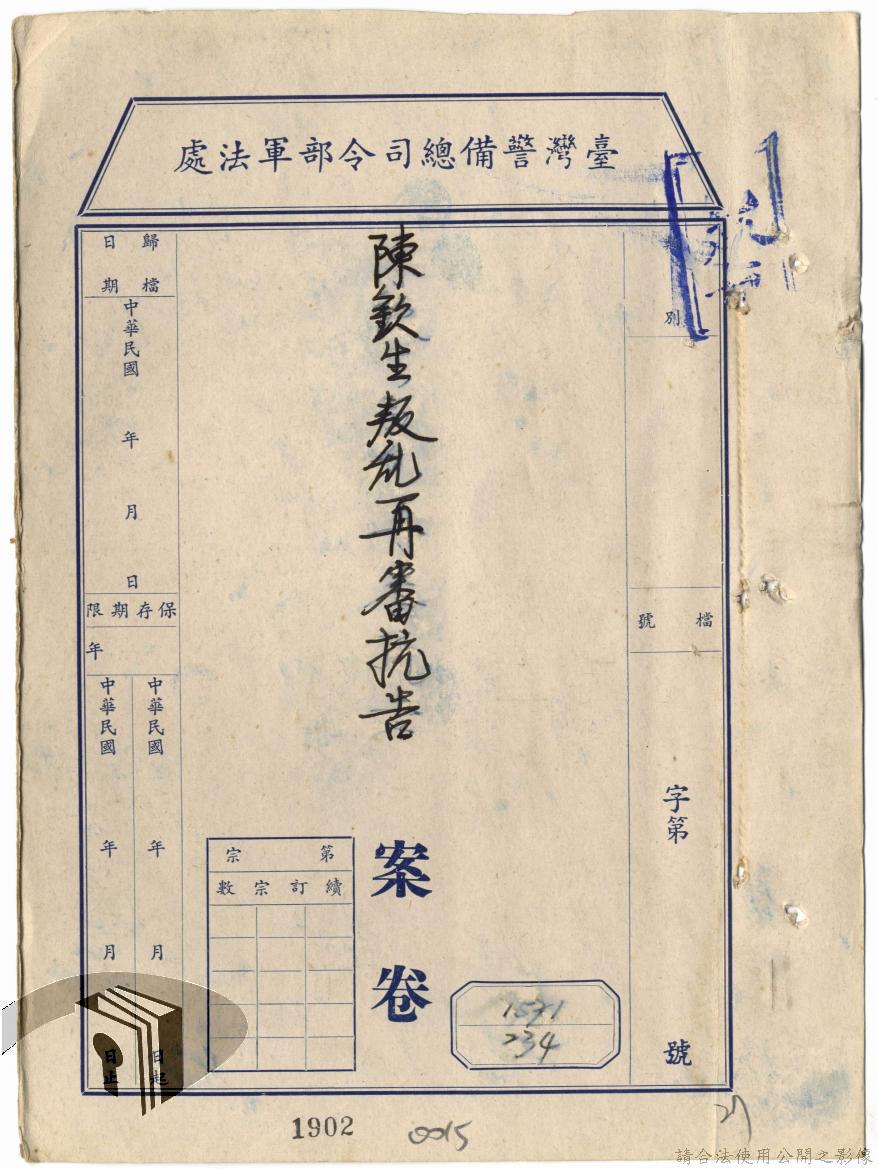 臺灣警備總司令部軍法處
別
檔號
字第
號
陳欽生叛乱再審抗告
案卷
第宗
續訂宗數
1571
234
歸檔日期
中華民國
年
月
日
保存期限
年
中華民國
年
月
日起
中華民國
年
月
日止
1902
0015
請合法使用公開之影像